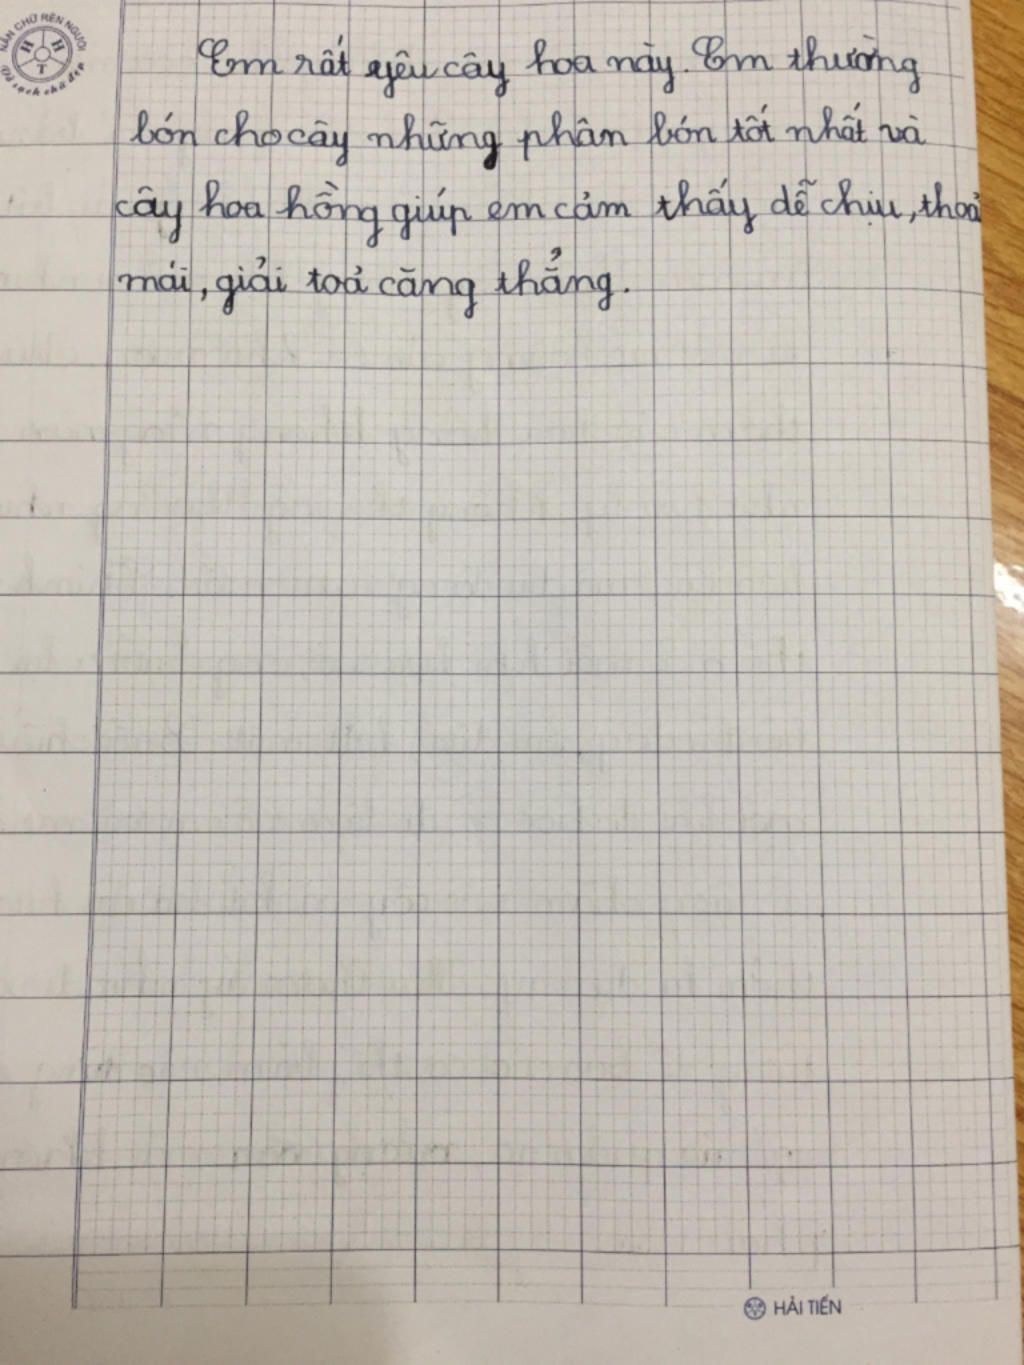 NẮN CHỮ RÈN NGƯỜI
H H
T
Vở sạch chữ đẹp
Em rất yêu cây hoa này. Em thường
bón cho cây những phân bón tốt nhất và
cây hoa hồng giúp em cảm thấy dễ chịu, thoả
mái, giải toả căng thẳng.
HẢI TIẾN